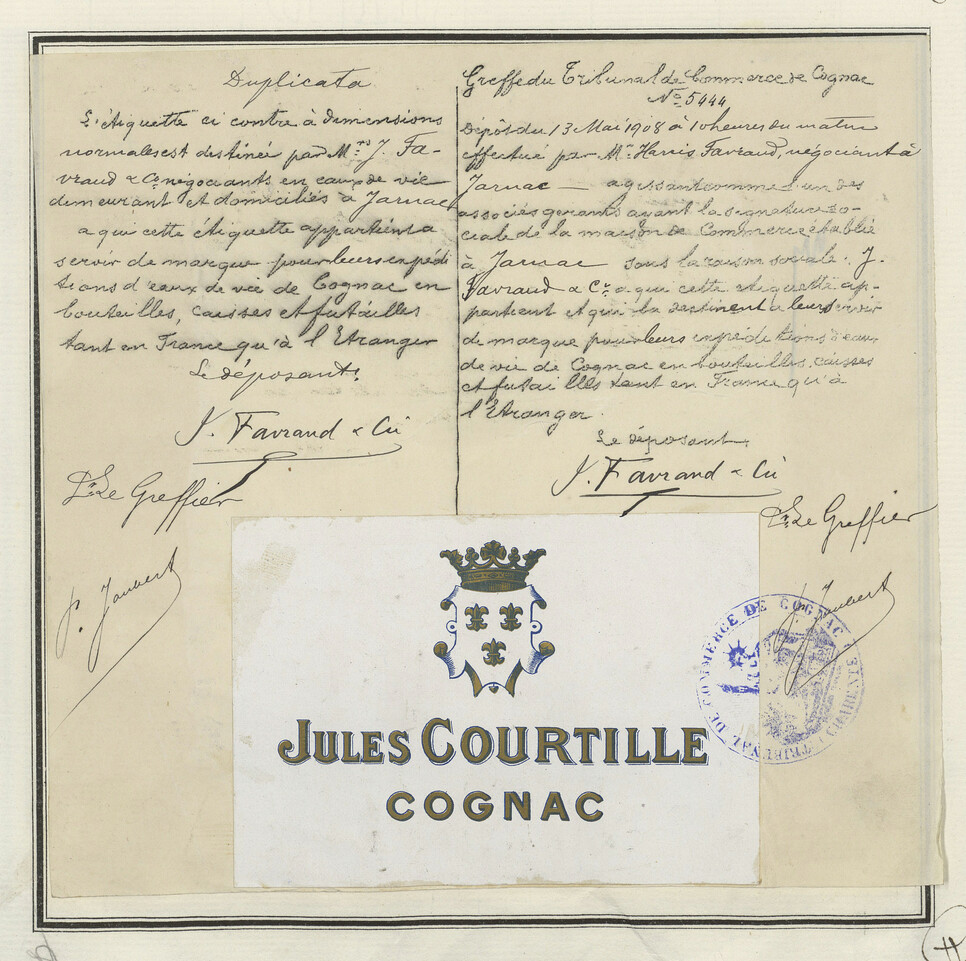 Duplicata
L'étiquette ci contre à dimensions
normales est destinée par Mrs J. Fa-
vraud & Co négociants en eaux de vie
demeurant et domiciliés à Jarnac
a qui cette étiquette appartient a
servir de marque pour leurs expédi
tions d'eaux de vie de Cognac en
bouteilles, caisses et futailles
tant en France qu'à l'Etranger
Le déposant,
J. Favraud & Cie
Le Greffier
p. Joubert
Greffe du Tribunal de Commerce de Cognac
No 5444
Dépôt du 13 Mai 1908 à 10 heures du matin
effectué par Mr Favraud, négociant à
Jarnac — agissant comme l'un des
associés gérants ayant la signature so-
ciale de la maison de Commerce établie
à Jarnac sous la raison sociale: J.
Favraud & Co a qui cette étiquette ap-
partient et qui la destinent a leur servir
de marque pour leurs expéditions d'eaux
de vie de Cognac en bouteilles, caisses
et futailles tant en France qu'à
l'Etranger.
Le déposant,
J. Favraud & Cie
Le Greffier
p. Joubert
TRIBUNAL DE COMMERCE DE COGNAC
CHARENTE
JULES COURTILLE
COGNAC